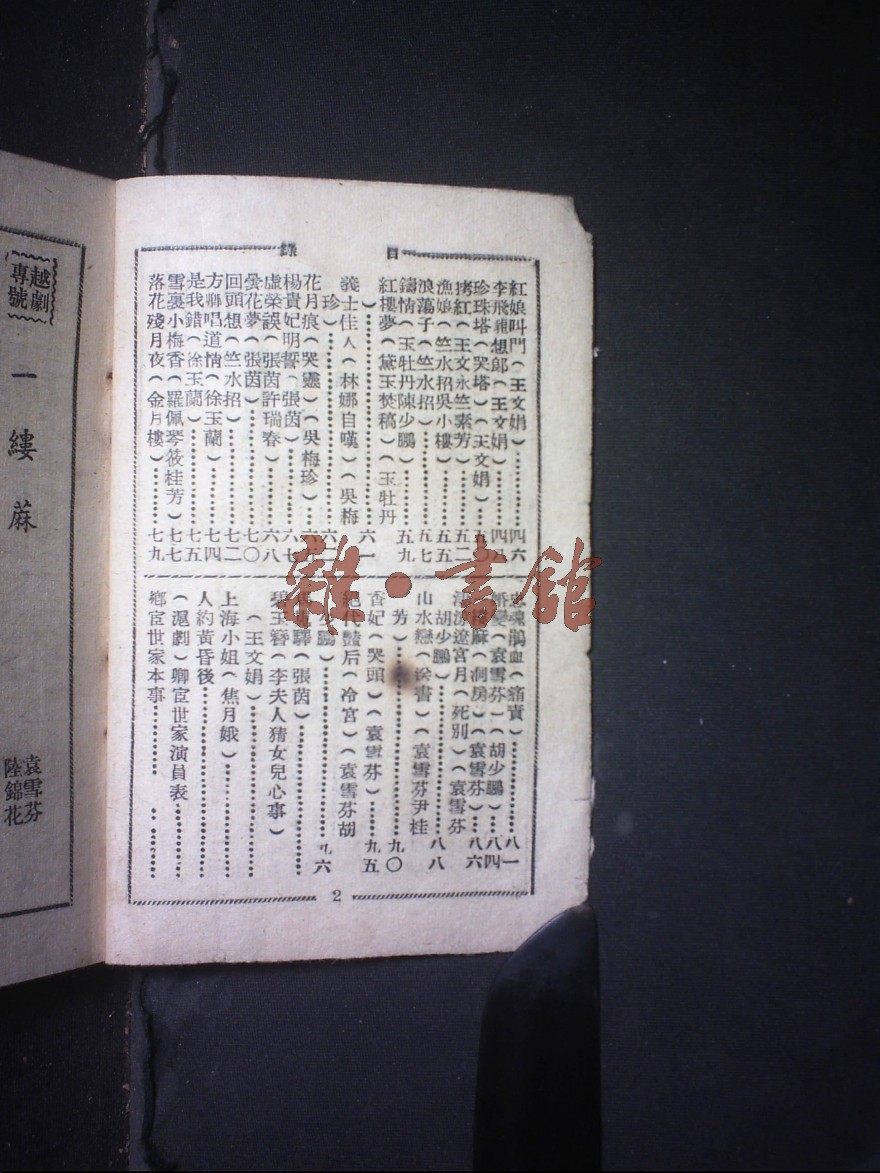 目錄
紅娘叫門(王文娟)……四六
李飛龍想郎(王文娟)……四八
珍珠塔(哭塔)(王文娟)……五〇
拷紅(王文永竺素芳)……五二
漁娘(竺水招吳小樓)……五五
浪蕩子(竺水招)……五七
鑄情(玉牡丹陳少鵬)……五九
紅樓夢(黛玉焚稿)(玉牡丹
)……六一
義士佳人(林娜自嘆)(吳梅
珍)……六二
花月痕(哭靈)(吳梅珍)……
楊貴妃明誓(張茵)……六七
虛榮誤(張茵許瑞春)……六八
曇花夢(張茵)……七〇
回頭想(竺水招)……七二
方卿唱道情(徐玉蘭)……七四
是我錯(徐玉蘭)……七五
雪裏小梅香(羅佩琴筱桂芳)……七七
落花殘月夜(金月樓)……七九
魂鵑血(痛責)……八一
(袁雪芬)(胡少鵬)……八四
縷麻(洞房)(袁雪芬)……八六
遼宮月(死別)(袁雪芬
胡少鵬)……八八
山水戀(袁雪芬尹桂
芳)……九〇
香妃(哭頭)(袁雪芬)……九五
絕代豔后(冷宮)(袁雪芬胡
少鵬)……九六
驛(張茵)……
碧玉簪(李夫人猜女兒心事)
(王文娟)……
上海小姐(焦月娥)……
人約黃昏後……
(滬劇)鄉宦世家演員表……
鄉宦世家本事……
2
越劇專號
一縷蔴
袁雪芬
陸錦花
雜·書館